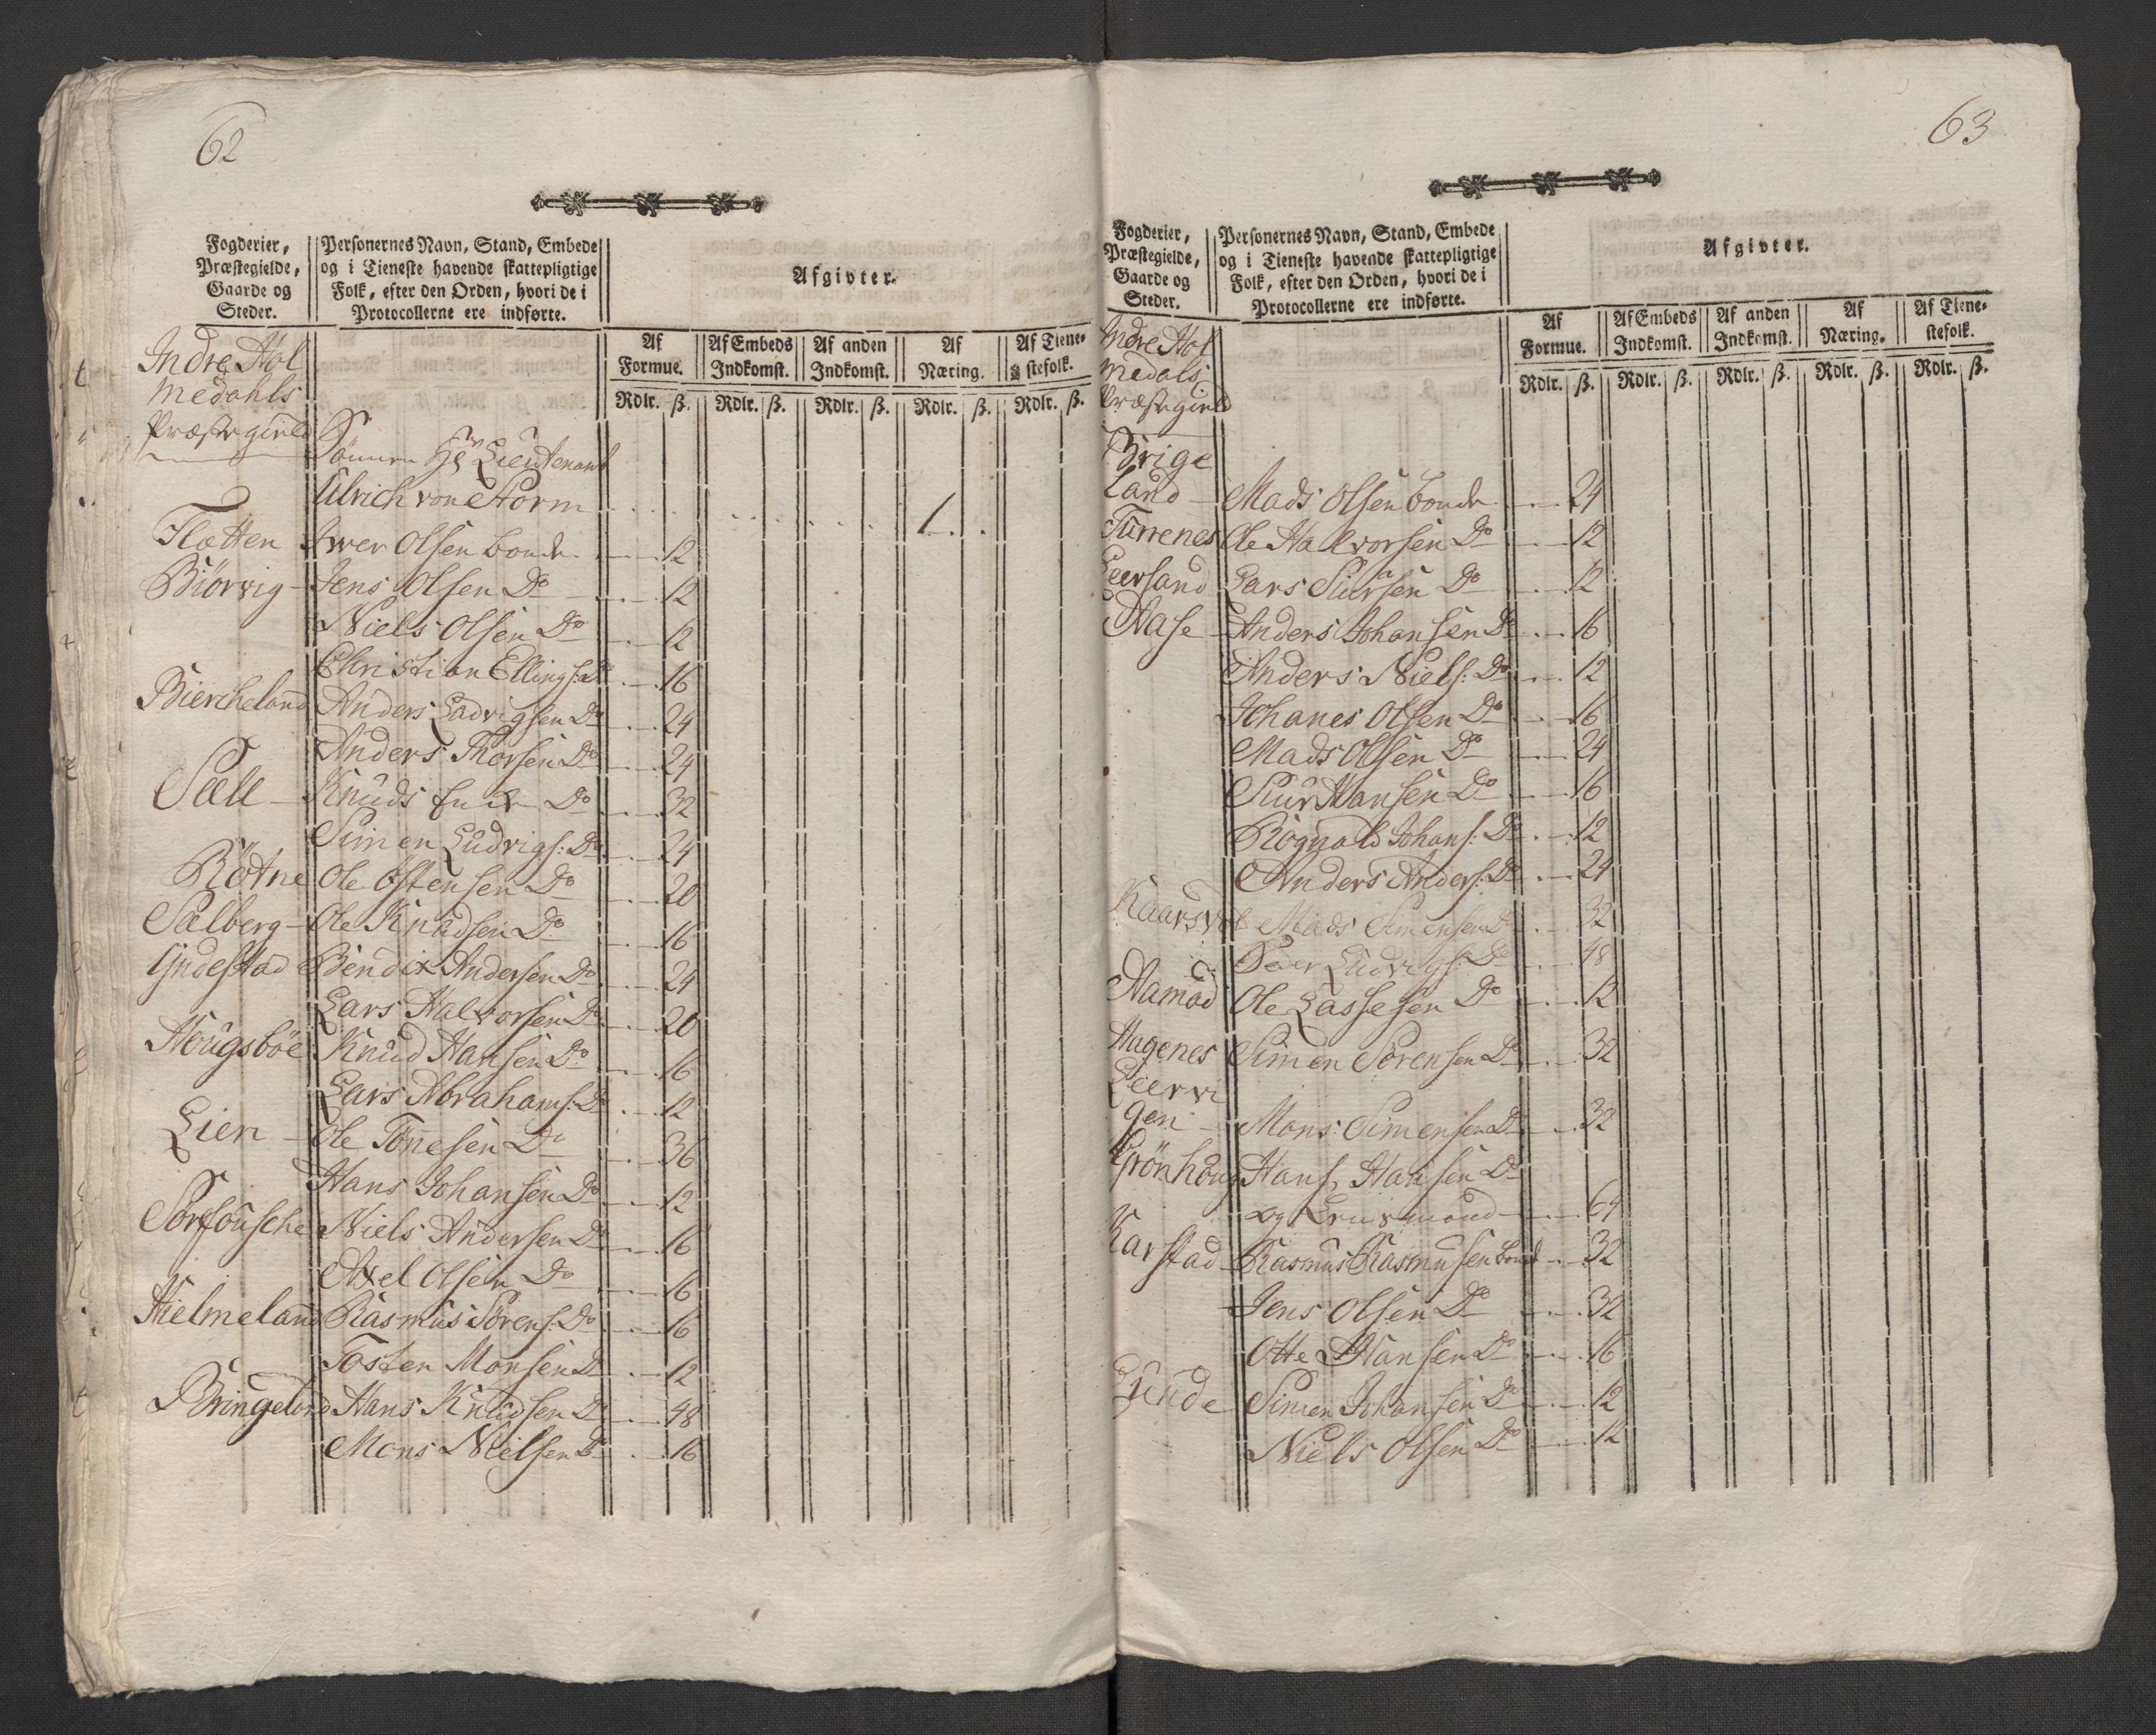 62
Fogderier,
Præstegielde,
Gaarde og
Steder.
Personernes Navn, Stand, Embede
og i Tieneste havende skattepligtige
Folk, efter den Orden, hvori de i
Protocollerne ere indførte.
Afgivter.
Af Formue. Af Embeds Indkomst. Af anden Indkomst. Af Næring. Af Tienestefolk.
Rdlr. ß. Rdlr. ß. Rdlr. ß. Rdlr. ß. Rdlr. ß.
Indre Hol
medahls
Præstegield
Hr Lieutenant
Ulrich von Storm 1
Flatten Iver Olsen bonde 12
Biörvig Jens Olsen Do 12
Niels Olsen Do 12
Christian Ellings: Do 16
Biercheland Anders Ladvigsen Do 24
Anders Thorsen Do 24
Sæll Knuds Do 32
Simen Ludvigs: Do 24
Rötne Ole Östensen Do 20
Sælberg Ole Knudsen Do 16
Yndestad Bendix Andersen Do 24
Lars Halvorsen Do 20
Hougsböe Knud Hansen Do 16
Lars Abrahams: Do 12
Lien Ole Tönesen Do 36
Hans Johansen Do 12
Niels Andersen Do 16
Axel Olsen Do 16
Hielmeland Rasmus Sörens: Do 16
Tosten Monsen Do 12
Bringeland Hans Knudsen Do 48
Mons Nielsen Do 16
63
Fogderier,
Præstegielde,
Gaarde og
Steder.
Personernes Navn, Stand, Embede
og i Tieneste havende skattepligtige
Folk, efter den Orden, hvori de i
Protocollerne ere indførte.
Afgivter.
Af Formue. Af Embeds Indkomst. Af anden Indkomst. Af Næring. Af Tienestefolk.
Rdlr. ß. Rdlr. ß. Rdlr. ß. Rdlr. ß. Rdlr. ß.
Indre Hol
medals
Præstegield
Brige
Land Mads Olsen bonde 24
Turrenes Ole Halvorsen Do 12
Leersand Lars Siursen Do 12
Aase Anders Johansen Do 16
Anders Niels: Do 12
Johanes Olsen Do 16
Mads Olsen Do 24
Siur Hansen Do 16
Rognald Johans: Do 12
Anders Anders: Do 24
Mads Simensen Do 32
Peder Ludvigs: Do 48
Aamod Ole Lassesen Do 12
Hagenes Simen Sörensen Do 32
Leervi
gen Mons: Simensen Do 32
Grönhoug Hans Hansen Do
og 64
Karstad Rasmus Rasmusen bonde 32
Jens Olsen Do 32
Otte Hansen Do 16
Lunde Simen Johansen Do 12
Niels Olsen Do 12